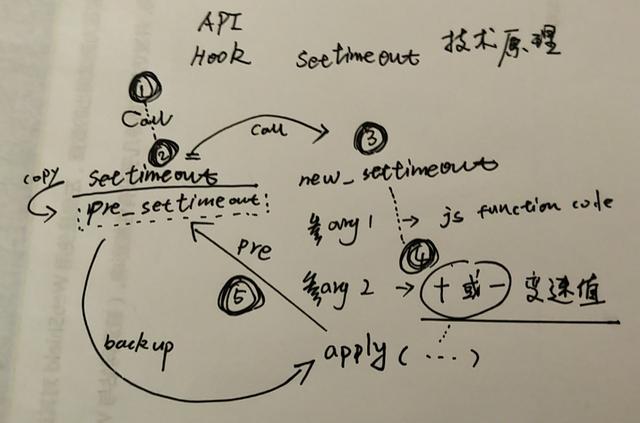 API
Hook settimeout 技术原理
①
Call
②
call
③
copy
settimeout
new_settimeout
pre_settimeout
参arg 1 → js function code
pre
④
⑤
参arg 2 → + 或 - 变速值
backup
apply (....)